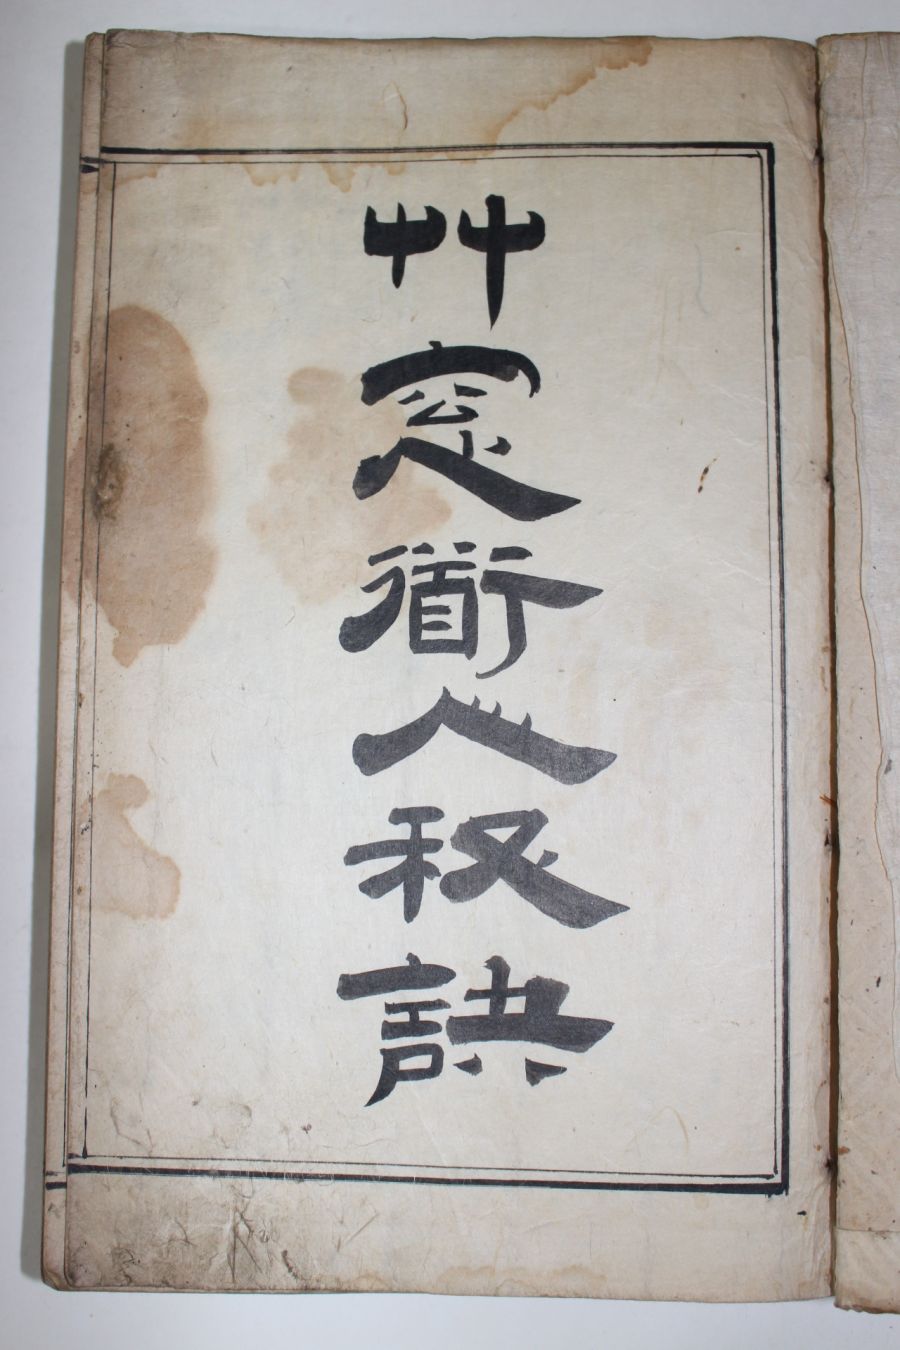 艸窓衜人秘訣